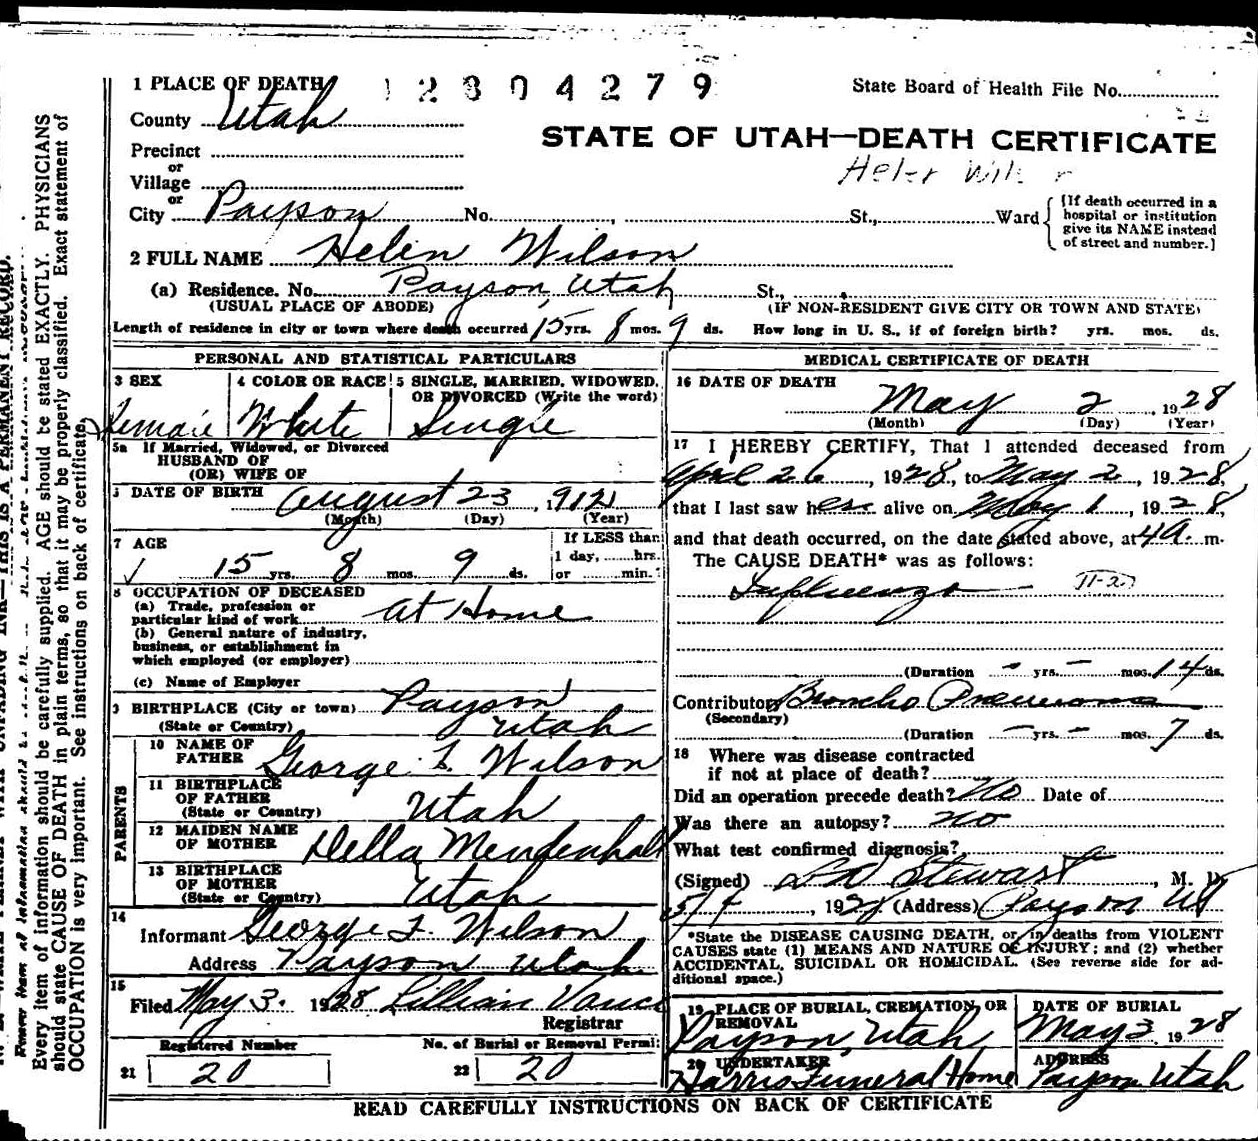 1 PLACE OF DEATH 12804279 State Board of Health File No.
County Utah
STATE OF UTAH—DEATH CERTIFICATE
Precinct
or
Village
or
City Payson No. , St., Ward
{If death occurred in a hospital or institution give its NAME instead of street and number.]
2 FULL NAME Helen Wilson
(a) Residence. No. Payson, Utah St.,
(USUAL PLACE OF ABODE) (IF NON-RESIDENT GIVE CITY OR TOWN AND STATE)
Length of residence in city or town where death occurred 15 yrs. 8 mos. 9 ds. How long in U. S., if of foreign birth? yrs. mos. ds.
PERSONAL AND STATISTICAL PARTICULARS
3 SEX 4 COLOR OR RACE 5 SINGLE, MARRIED, WIDOWED, OR DIVORCED (Write the word)
Female White Single
5a If Married, Widowed, or Divorced
HUSBAND OF
(OR) WIFE OF
DATE OF BIRTH August 23, 1912
(Month) (Day) (Year)
7 AGE If LESS than
15 yrs. 8 mos. 9 ds. 1 day, hrs. or min.
8 OCCUPATION OF DECEASED
(a) Trade, profession or
particular kind of work At Home
(b) General nature of industry,
business, or establishment in
which employed (or employer)
(c) Name of Employer
9 BIRTHPLACE (City or town) Payson
(State or Country) Utah
PARENTS
10 NAME OF FATHER George F. Wilson
11 BIRTHPLACE OF FATHER (State or Country) Utah
12 MAIDEN NAME OF MOTHER Della Mendenhall
13 BIRTHPLACE OF MOTHER (State or Country) Utah
14
Informant George F. Wilson
Address Payson Utah
15
Filed May 3. 1928 Lillian Vance
Registrar
Registered Number No. of Burial or Removal Permit
21 20 22 20
MEDICAL CERTIFICATE OF DEATH
16 DATE OF DEATH
May 2, 1928
(Month) (Day) (Year)
17 I HEREBY CERTIFY, That I attended deceased from
April 26, 1928, to May 2, 1928,
that I last saw her alive on May 1, 1928,
and that death occurred, on the date stated above, at 4 a. m.
The CAUSE DEATH* was as follows:
Influenza
(Duration - yrs. - mos. 14 ds.
Contributory Broncho Pneumonia
(Secondary)
(Duration - yrs. - mos. 7 ds.
18 Where was disease contracted
if not at place of death?
Did an operation precede death? No Date of
Was there an autopsy? no
What test confirmed diagnosis?
(Signed) Stewart, M. D.
5/4, 1928 (Address) Payson Ut
*State the DISEASE CAUSING DEATH, or, in deaths from VIOLENT
CAUSES state (1) MEANS AND NATURE OF INJURY; and (2) whether
ACCIDENTAL, SUICIDAL OR HOMICIDAL. (See reverse side for ad-
ditional space.)
19 PLACE OF BURIAL, CREMATION, OR REMOVAL DATE OF BURIAL
Payson, Utah May 3 1928
20 UNDERTAKER ADDRESS
Harris Funeral Home Payson Utah
READ CAREFULLY INSTRUCTIONS ON BACK OF CERTIFICATE
Every item of information should be carefully supplied. AGE should be stated EXACTLY. PHYSICIANS
should state CAUSE OF DEATH in plain terms, so that it may be properly classified. Exact statement of
OCCUPATION is very important. See instructions on back of certificate.